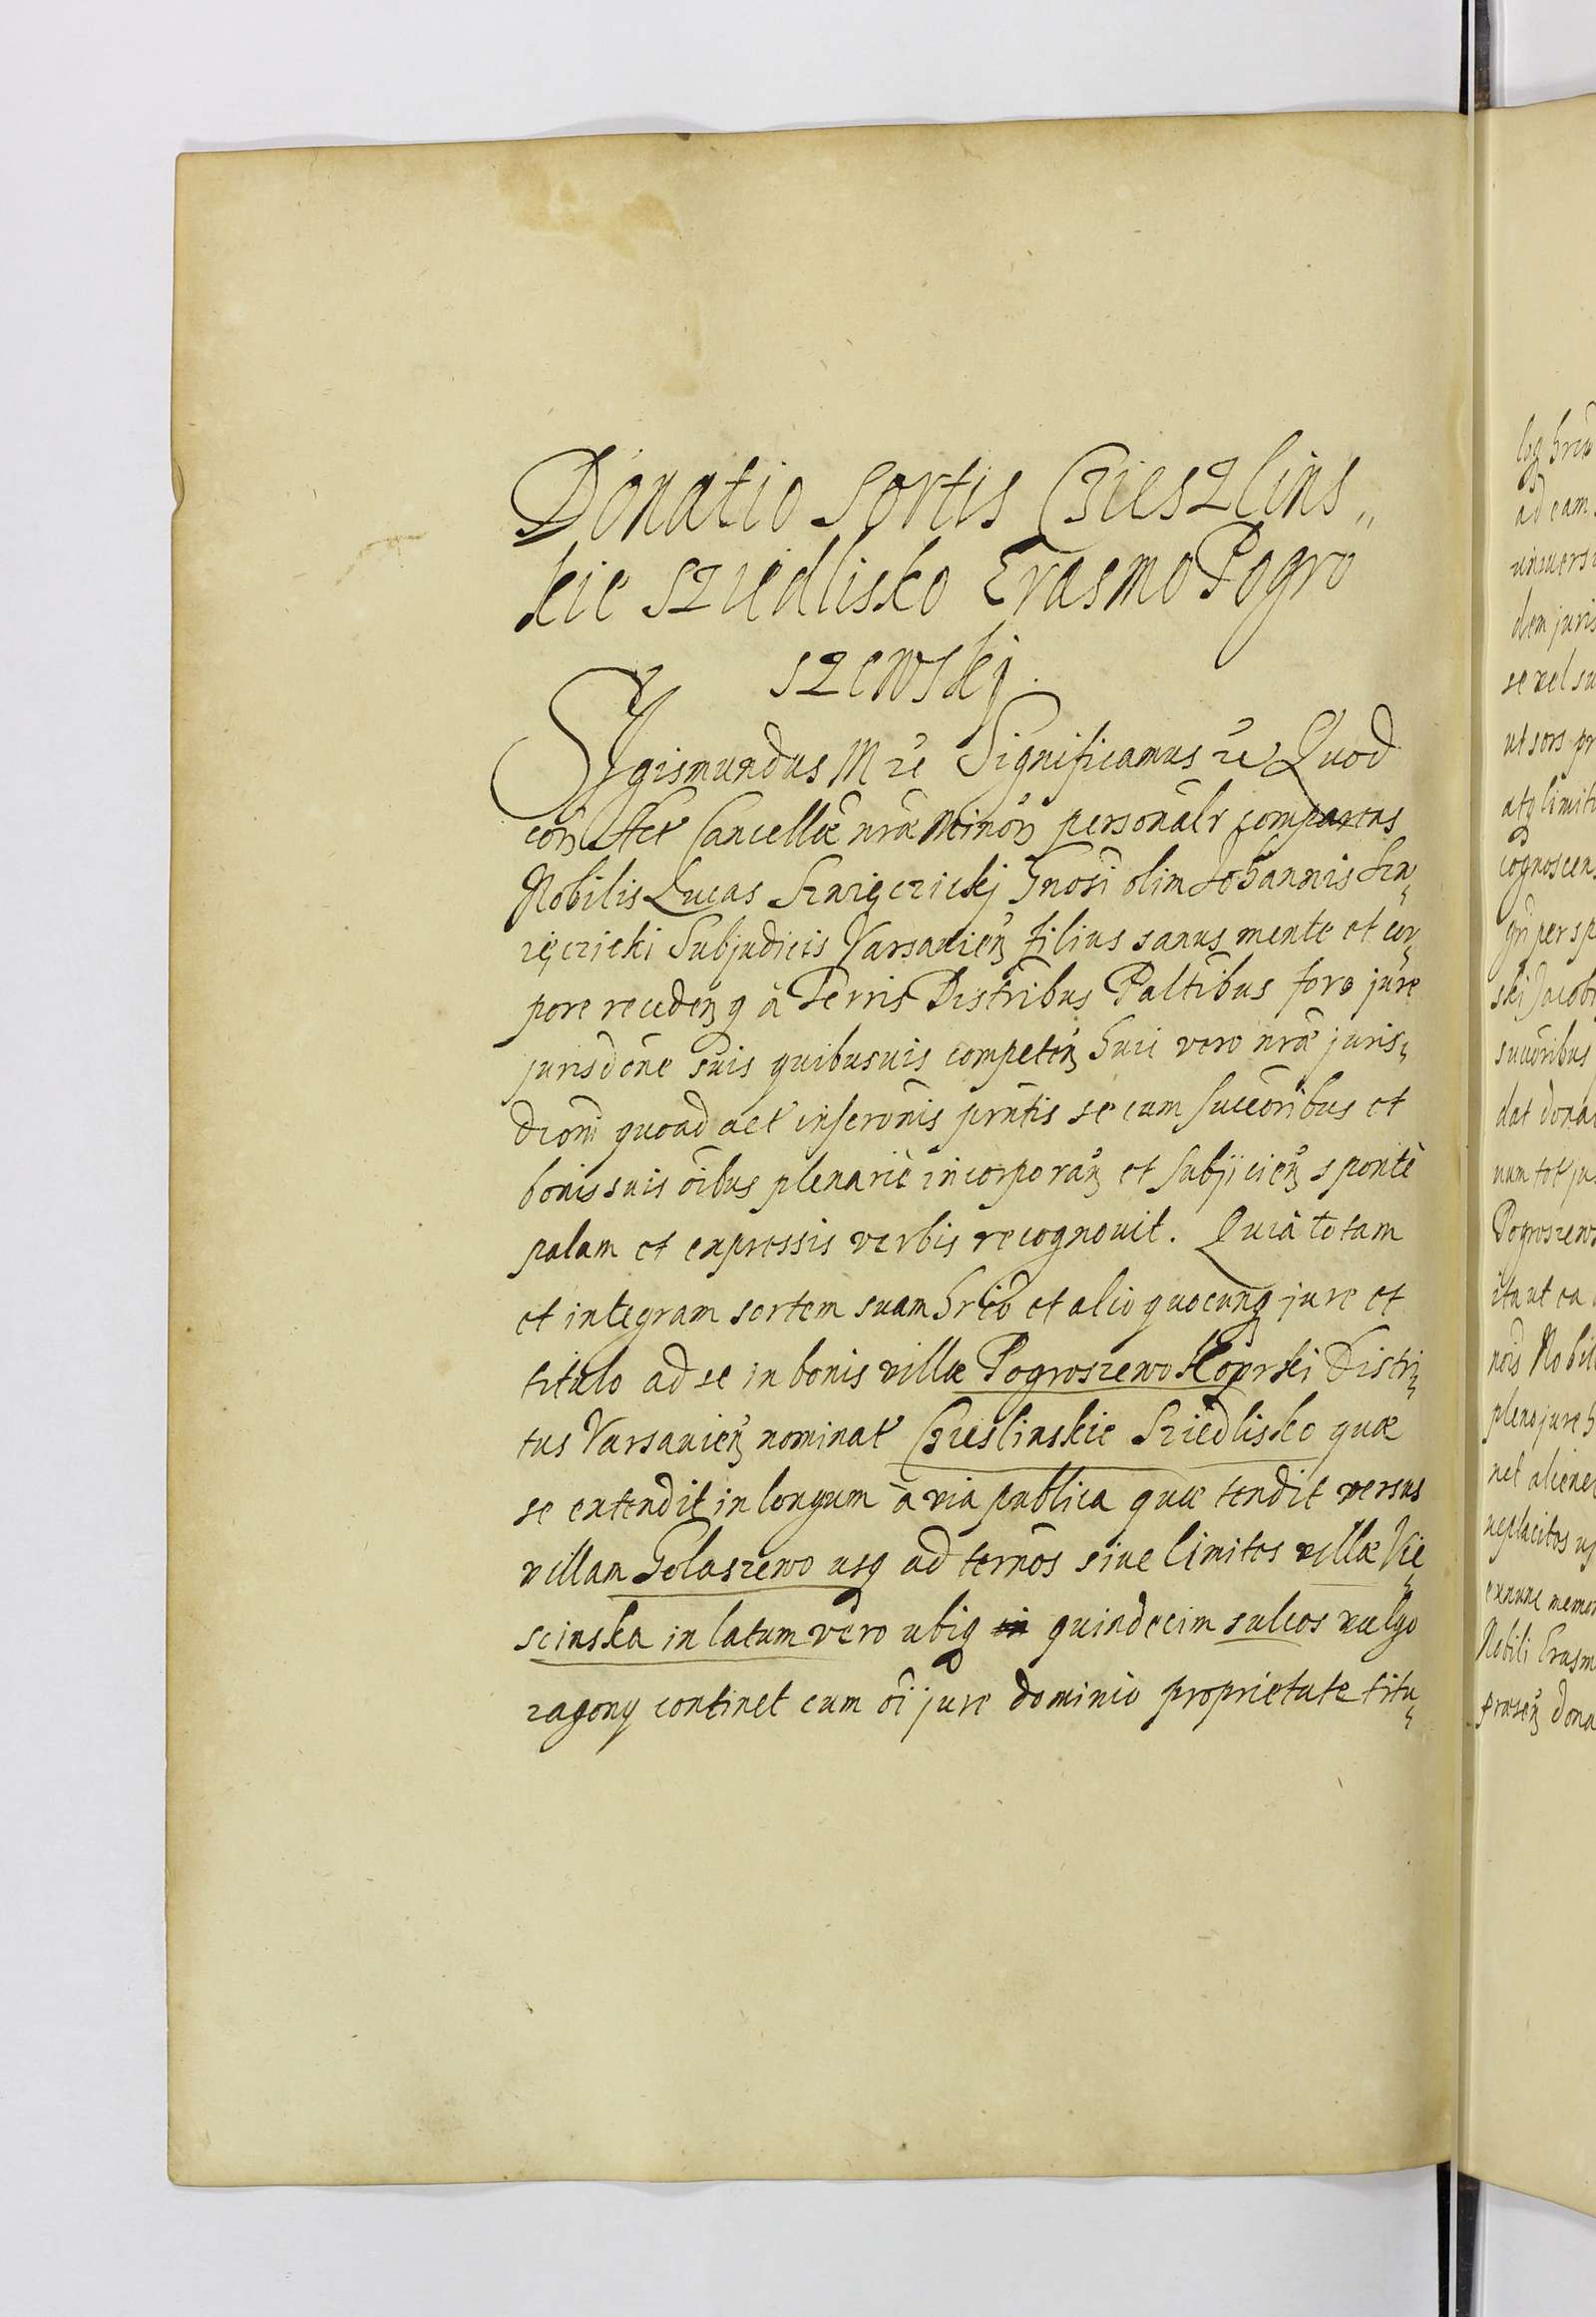 Donatio Sortis Czieszlins„
kie sziedlisko Erasmo Pogro
szewskj.
Sigismundus M ze Significamus ze Quod
cor̃ Act Cancellæ nr̃æ Minor̃ personalr comparens
Nobilis Lucas Szwięczickj Gnosi olim Johannis Szw„
ięczicki Subjudicis Varsavien̄ filius sanus mente et cor„
pore receden̄q à Terris Distribus Paltibus foro jure
jurisdone suis quibusuis competen̄ huic vero nr̃æ juris„
dioni quoad act inseronis prntis se cum succoribus et
bonis suis oibus plenariè incorporan̄ et subjicien̄ spontè
palam et expressis verbis recognouit. Quia totam
et integram sortem suam hrio et alio quocunq jure et
titulo ad se in bonis villæ Pogroszewo Koprki Distri„
tus Varsavien̄ nominat Czieslinskie Sziedlisko quæ
se extendit in longum à via publica quæ tendit versus
villam Golaszewo usq ad ternos siue limites villæ Vie„
scinska in latum vero ubiq quindecim sulcos vulgo
zagony continet cum oi jure dominio proprietate titu„
ad eam
dem juris
se vel su
ut sors pr
atq limit
cognoscen
succoribus
dat dona
Pogroszews
ita ut ea
pleno jure h
vel aliene
Nobili Erasm
præsen̄ dona